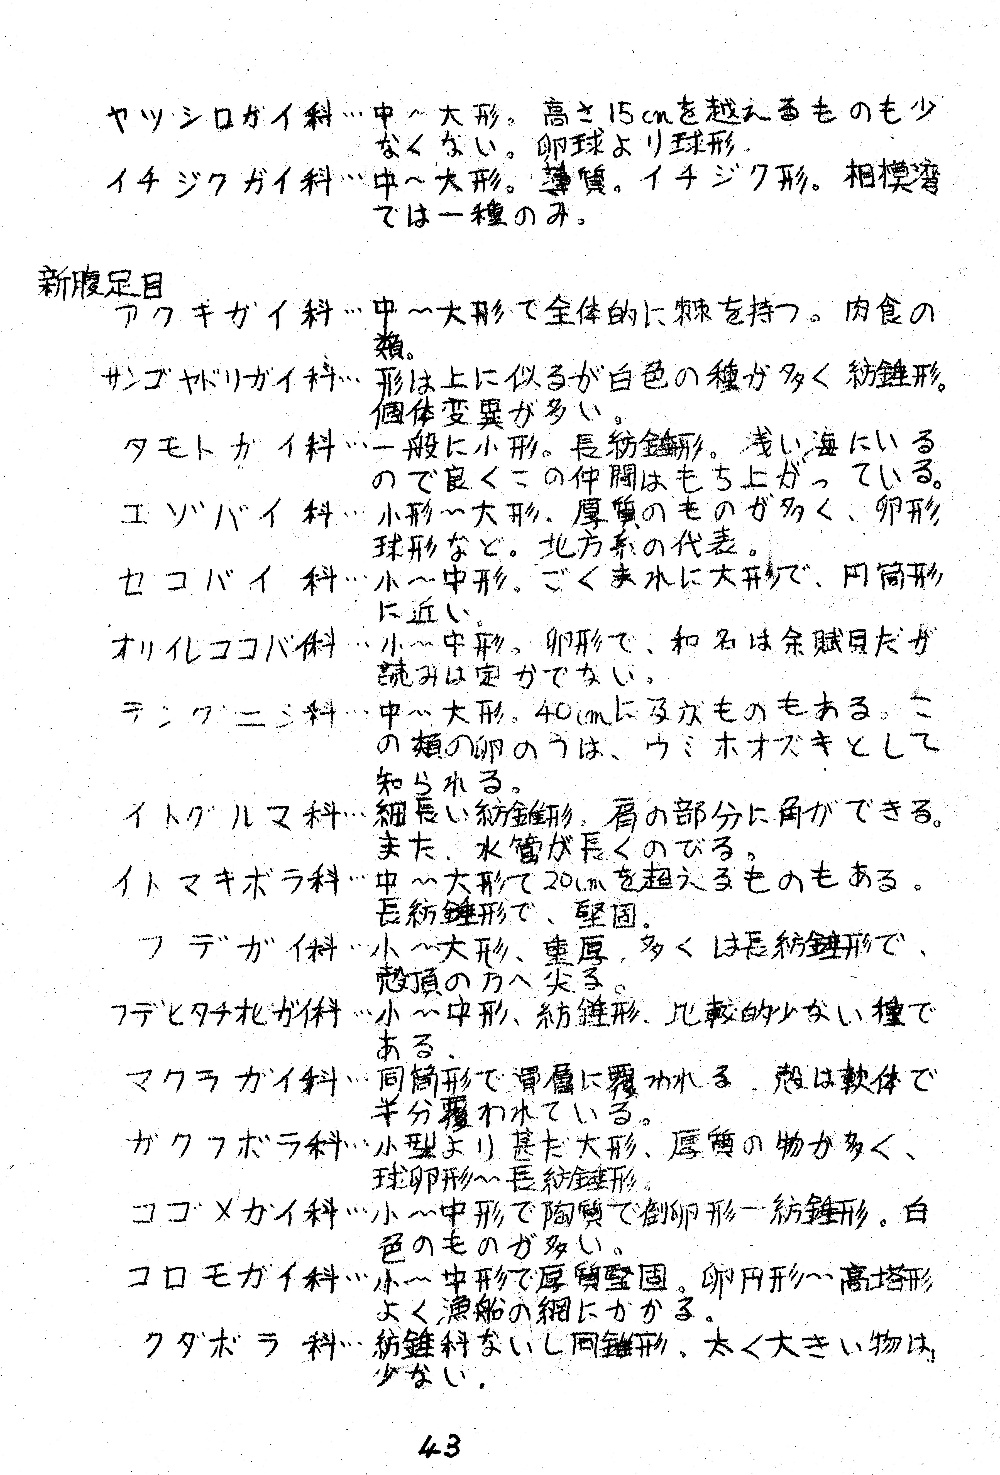 ヤツシロガイ科…中〜大形。高さ15cmを越えるものも少
なくない。卵球より球形.
イチジクガイ科…中〜大形。薄質。イチジク形。相模湾
では一種のみ。
新腹足目
アクキガイ科…中〜大形で全体的に棘を持つ。肉食の
類。
サンゴヤドリガイ科…形は上に似るが白色の種が多く紡錘形。
個体変異が多い。
タモトガイ科…一般に小形。長紡錘形。浅い海にいる
ので良くこの仲間はもち上がっている。
エゾバイ科…小形〜大形、厚質のものが多く、卵形
球形など。北方系の代表。
セコバイ科…小〜中形。ごくまれに大形で、円筒形
に近い。
オリイレココバイ科…小〜中形。卵形で、和名は余賦貝だが
読みは定かでない。
テングニシ科…中〜大形。40cmに及ぶものもある。こ
の類の卵のうは、ウミホオズキとして
知られる。
イトグルマ科…細長い紡錘形。肩の部分に角ができる。
また、水管が長くのびる。
イトマキボラ科…中〜大形で20cmを超えるものもある。
長紡錘形で、堅固。
フデガイ科…小〜大形、重厚。多くは長紡錘形で、
殻頂の方へ尖る。
フデヒタチオビガイ科…小〜中形、紡錘形、比較的少ない種で
ある、
マクラガイ科…同筒形で滑層に覆われる。殻は軟体で
半分覆われている。
ガクフボラ科…小型より甚だ大形、厚質の物が多く、
球卵形〜長紡錘形。
ココメガイ科…小〜中形で陶質で倒卵形ー紡錘形。白
色のものが多い。
コロモガイ科…小〜中形で厚質堅固。卵円形〜高塔形
よく漁船の網にかかる。
クダボラ科…紡錘科ないし同錘形、太く大きい物は
少ない.
43